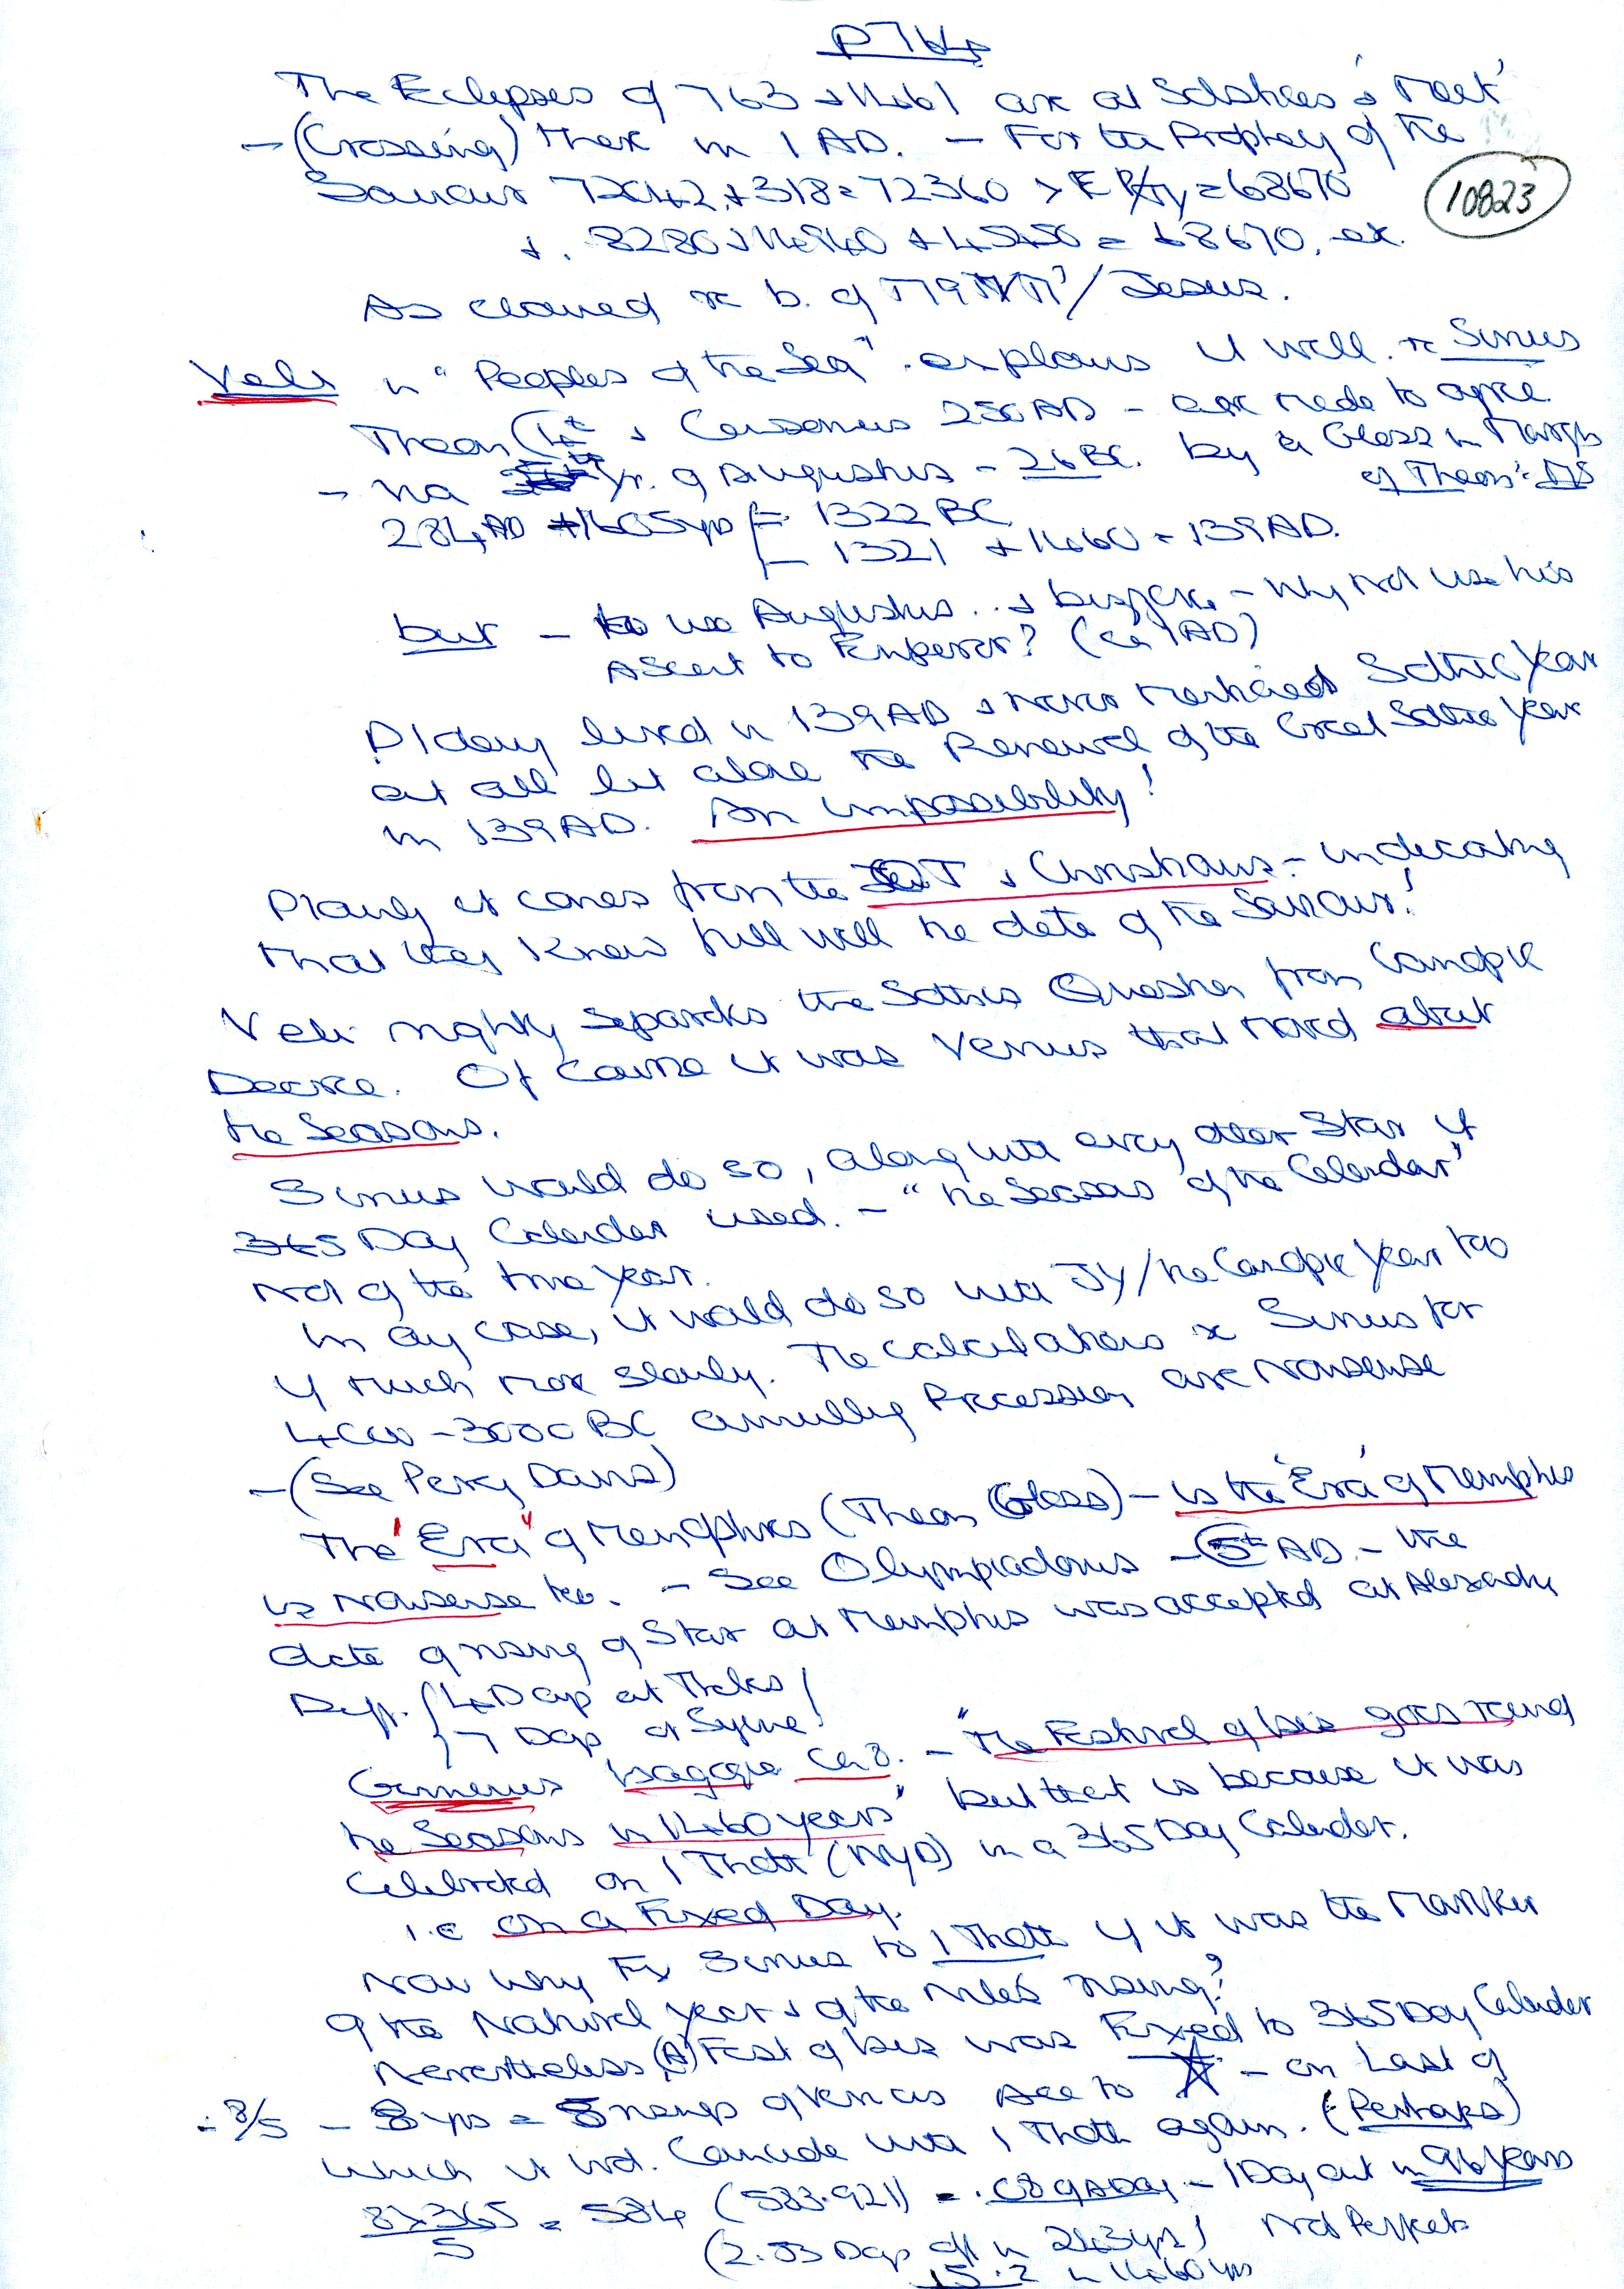 P764
The Eclipses of 763 & 1461 are at Solstices & 'Meet'
- (Crossing) there in 1 AD. - For the Prophecy of the
Saviour 72042 + 318 = 72360 > E P/Ty = 68670
10823
+ . 8280 + 14940 + 45450 = 68670, ex.
As claimed re b. of Jesus.
Veli in "Peoples of the Sea" explains it well. re Sirius
Theon (4th & Censorinus 250 AD - are made to agree
- by a Gloss in Margin
yr. of Augustus - 26 BC. of Theon's MS
284 AD + 1605 yrs = 1322 BC
1321 + 1460 = 139 AD.
but - to use Augustus .. & - Why not use his
Ascent to Emperor? (ie 1 AD)
Ptolemy lived in 139 AD & never mentioned Sothic Year
at all let alone the Renewal of the Great Sothic Year
in 139 AD. An impossibility!
Plainly it comes from the OT & Christians - indicating
that they knew full well the date of the Saviour!
Veli rightly separates the Sothis Question from Canopic
Decree. Of Course it was Venus that moved about
the Seasons.
Sirius would do so, along with every other Star if
365 Day Calendar used. - "the Seasons of the Calendar"
not of the true year.
In any case, it would do so with JY/the Canopic Year too
if much more slowly. The calculations re Sirius for
4000 - 3000 BC annulling Precession are Nonsense
- (See Percy Davis)
The "Era" of Menophres (Theon Gloss) - is the 'Era' of Memphis
is Nonsense too. - See Olympiodorus - 5th AD. - the
date of rising of Star at Memphis was accepted at Alexandria
Diff. { 4 Days at Thebes!
} 7 Days at Syene!
Geminus Isagoge Ch 8. - "The Festival of Isis goes round
the Seasons in 1460 years" but that is because it was
Celebrated on 1 Thoth (NYD) in a 365 Day Calendar.
i.e on a Fixed Day.
Now why Fix Sirius to 1 Thoth if it was the Marker
of the Natural year & of the Nile's rising?
Nevertheless, (A) Feast of Isis was Fixed to 365 Day Calendar
- 8/5 - 8 yrs = 5 risings of Venus Acc to ☆ - on Last of
which it wd. Coincide with 1 Thoth again. (Perhaps)
8 x 365 / 5 = 584 (583.921) = .089 A Day - 1 Day out in 96 Years
(2.53 Days off in 243 yrs) Not Perfect
15.2 in 1460 yrs